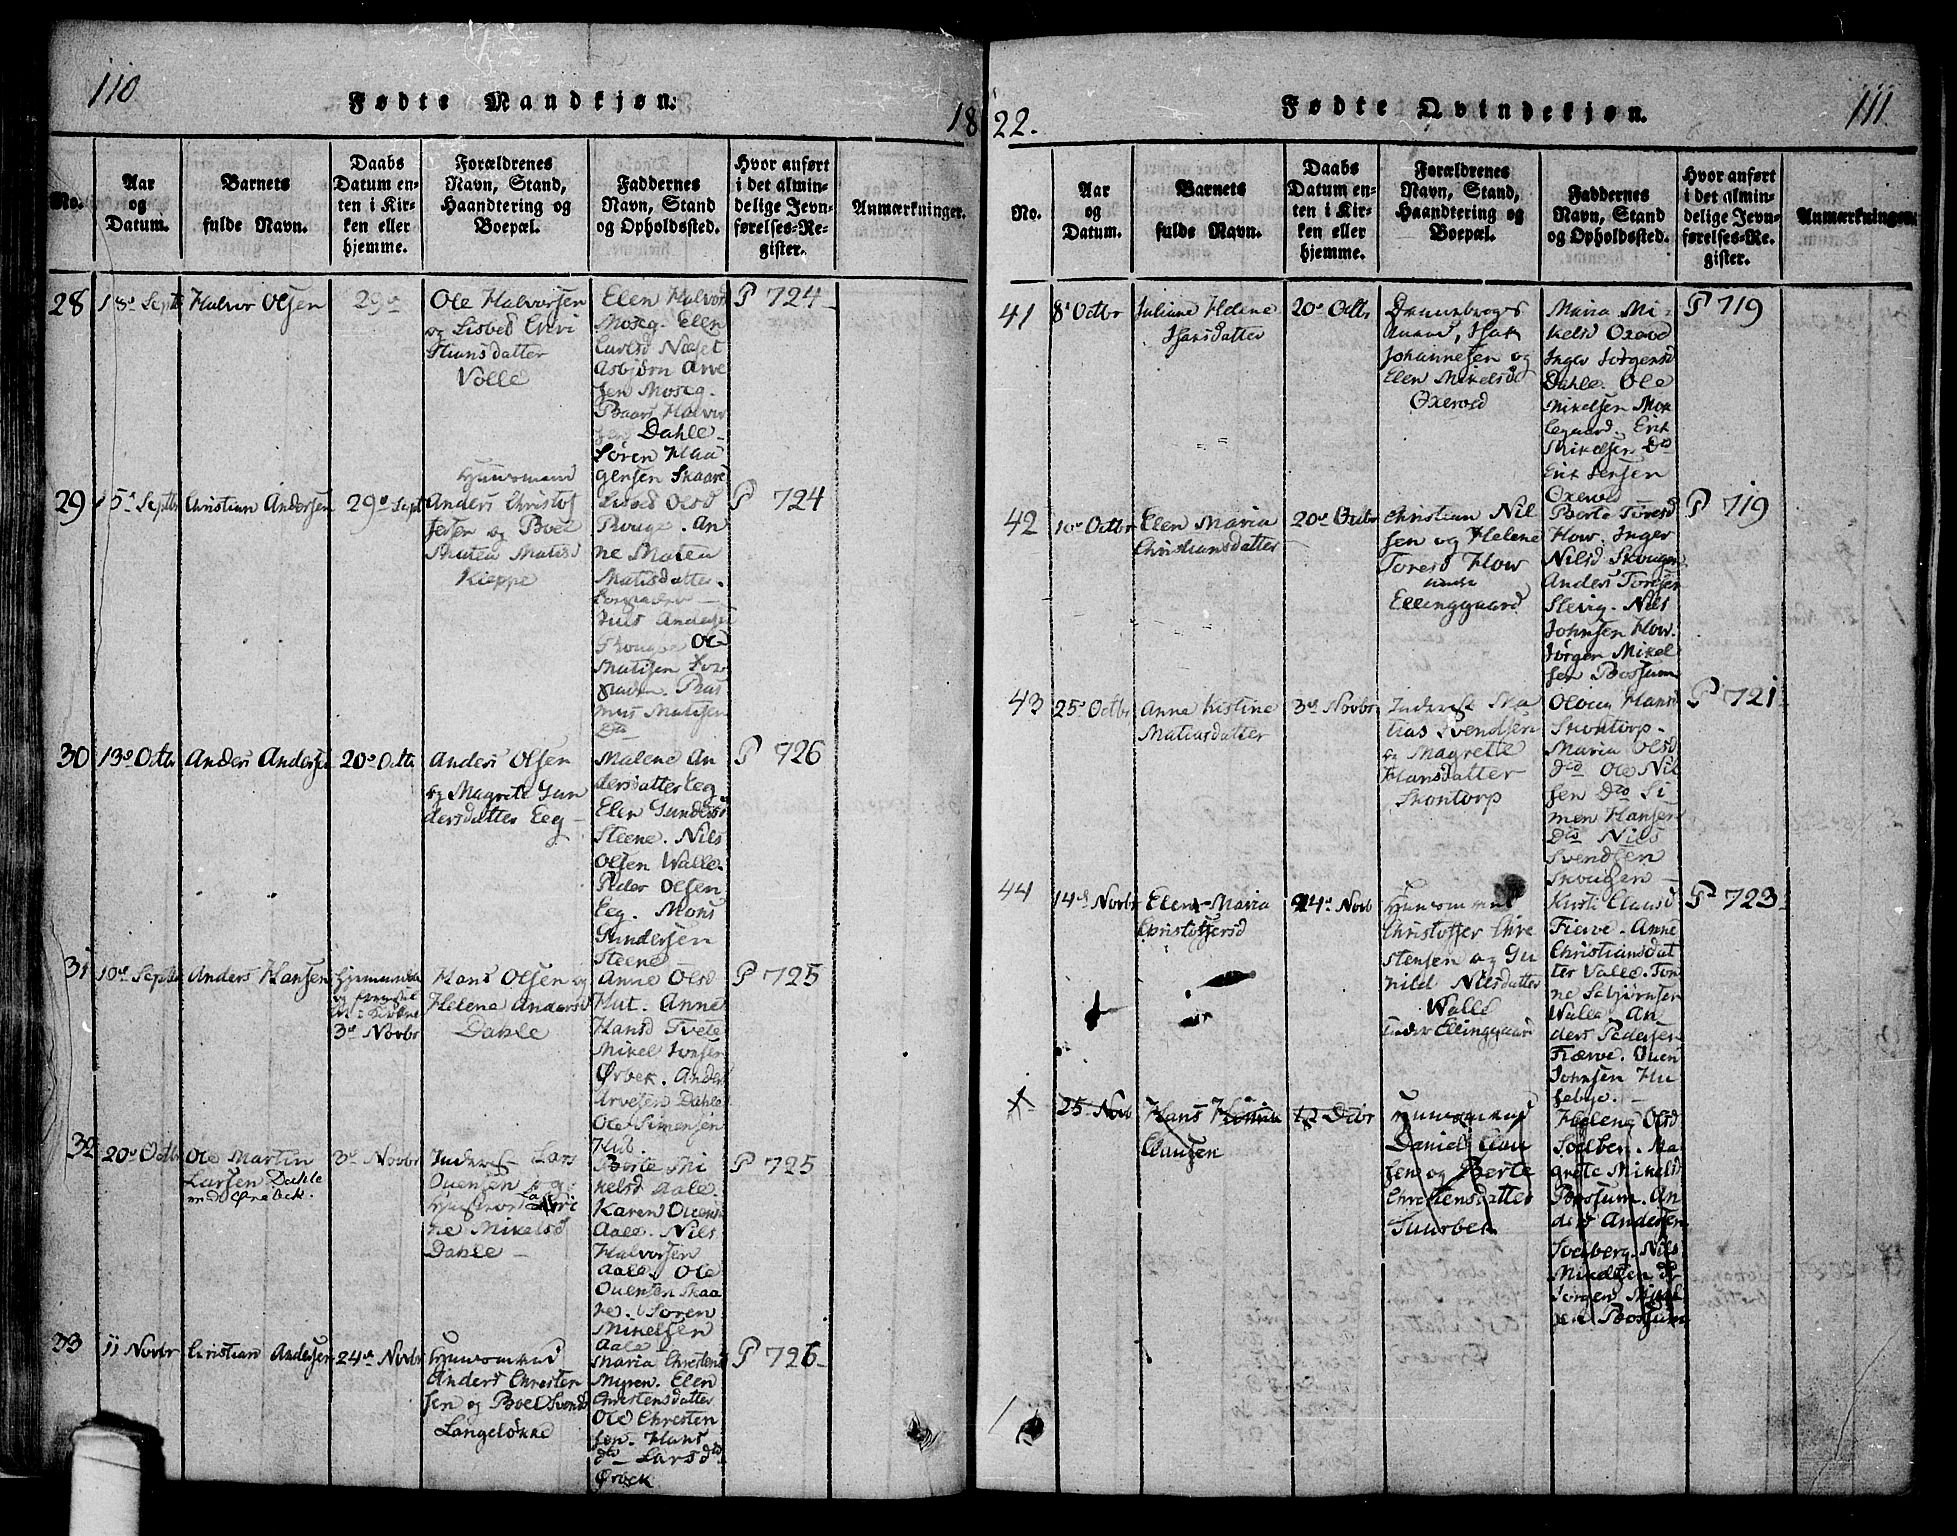 110
Fødte Mandkjøn.
18
No.
Aar
og
Datum.
Barnets
fulde Navn.
Daabs
Datum en-
ten i Kir-
ken eller
hjemme.
Forældrenes
Navn, Stand,
Haandtering og
Boepæl.
Faddernes
Navn, Stand
og Opholdssted.
Hvor anført
i det almin-
delige Jevn-
førelses-Re-
gister.
Anmærkninger.
28
Halvor Olsen
29de
Ole Halvorsen
og Lisbed Chri
stiansdatter
Volle
Elen Halvors
Moseg. Elen
Næset
Asbjørn Arve
sen Moseg.
Baars Halvor
sen Dahle
Søren Haa
gensen Skaare
P 724
29
15de Septbr
Christian Andersen
29de Sept
Huusmand
Anders Christof
fersen og Boel
Maten Matisd
Kieppe
Lisbed Olsd
An
ne Maten
Matisdatter
Andersen
Ole
Matisen
Ras
mus Matisen
dto
P 724
30
13de Octbr
Anders Andersen
20de Octbr
Anders Olsen
og Magrete Gun
dersdatter Eeg
Malene An
dersdatter Eeg
Elen Gundersd
Steene. Nils
Olsen Walle.
Peder Olsen
Eeg. Mons
Gundersen
Steene
P 726
31
10de Septbr
Anders Hansen
Hjemmedøbt
og fremstil
let i Kirken
3de Novbr
Hans Olsen og
Helene Andersd
Dahle
Anne Olsd
Hut. Anne
Hansd Tvete
Mikel Iversen
Ørbek. Anders
Arvesen Dahle
Ole Simensen
Hub.
P 725
32
20de Octbr
Ole Martin
Larsen Dahle
med Ørebek.
3de Novbr
Inderst Lars
Ouensen og
Hustrue
ne Mikelsd
Dahle
Berte Mi
kelsd Aale.
Karen Ouens
Aale. Nils
Halvorsen
Aale. Ole
Ouensen Skaa
re. Søren
Mikelsen
Aale
P 725
33
11 Novbr
Christian Andersen
24de Novbr
Huusmand
Anders Christen
sen og Boel Svends
Langeløkke
Maria Christens
Myren. Elen
Christensdatter
Ole Christen
sen. Hans
dto Lars dto
Ørbek
P 726
22.
Fødte Qvindekjøn.
111
No.
Aar
og
Datum.
Barnets
fulde Navn.
Daabs
Datum en-
ten i Kir-
ken eller
hjemme.
Forældrenes
Navn, Stand,
Haandtering og
Boepæl.
Faddernes
Navn, Stand
og Opholdssted.
Hvor anført
i det almin-
delige Jevn-
førelses-Re-
gister.
Anmærkninger.
41
8de Octbr
Juliane Helene
Isaksdatter
20de Octbr
Dannebrogs
mand, Isak
Johannesen og
Elen Mikelsd
Oxevold
Maria Mi
kelsd Oxevold
Inger Jørgensd
Dahle. Ole
Mikelsen Mok
legaard. Erik
Mikelsen Do
Erik Jensen
Oxevold
P 719
42
10de Octbr
Elen Maria
Christiansdatter
20de Octbr
Christian Nil
sen og Helene
Toresd How
under
Ellinggaard
Berte Toresd
How. Inger
Nilsd Skougen
Anders Toresen
Slevig. Nils
Johnsen How.
Jørgen Mikel
sen Bossum
P 719
43
25de Octbr
Anne Kistine
Matiasdatter
3de Novbr
Inderst Ma
tias Svendsen
og Magrette
Hansdatter
Skontorp
Oloug Hansd
Skontorp.
Maria Olsd
do Ole Nil
sen Dto Si
men Hansen
Dto Nils
Svendsen
Skougen
P 721
44
14de Novbr
Elen Maria
Christoffersd
24de Novb
Huusmand
Christoffer Chri
stensen og Gu
nild Nilsdatter
Walle
under Ellinggaard
Kirsti Clausd
Fierve. Anne
Christiansdat
ter Valle. Ton
ne Asbjørnsen
Walle An
ders Pedersen
Fierve. Ouen
Johnsen Hu
sebye.
P 723
25 Nov
Hans
Clausen
12 Decbr
Huusmand
Daniel Clau
sen og Berte
Christensdatter
Tuurbek
Helene Olsd
Solberg. Ma
grete Mikelsd
Bossum. An
ders Andersen
Soelberg. Nils
Mikelsen do
Jørgen Mikel
sen Bossum